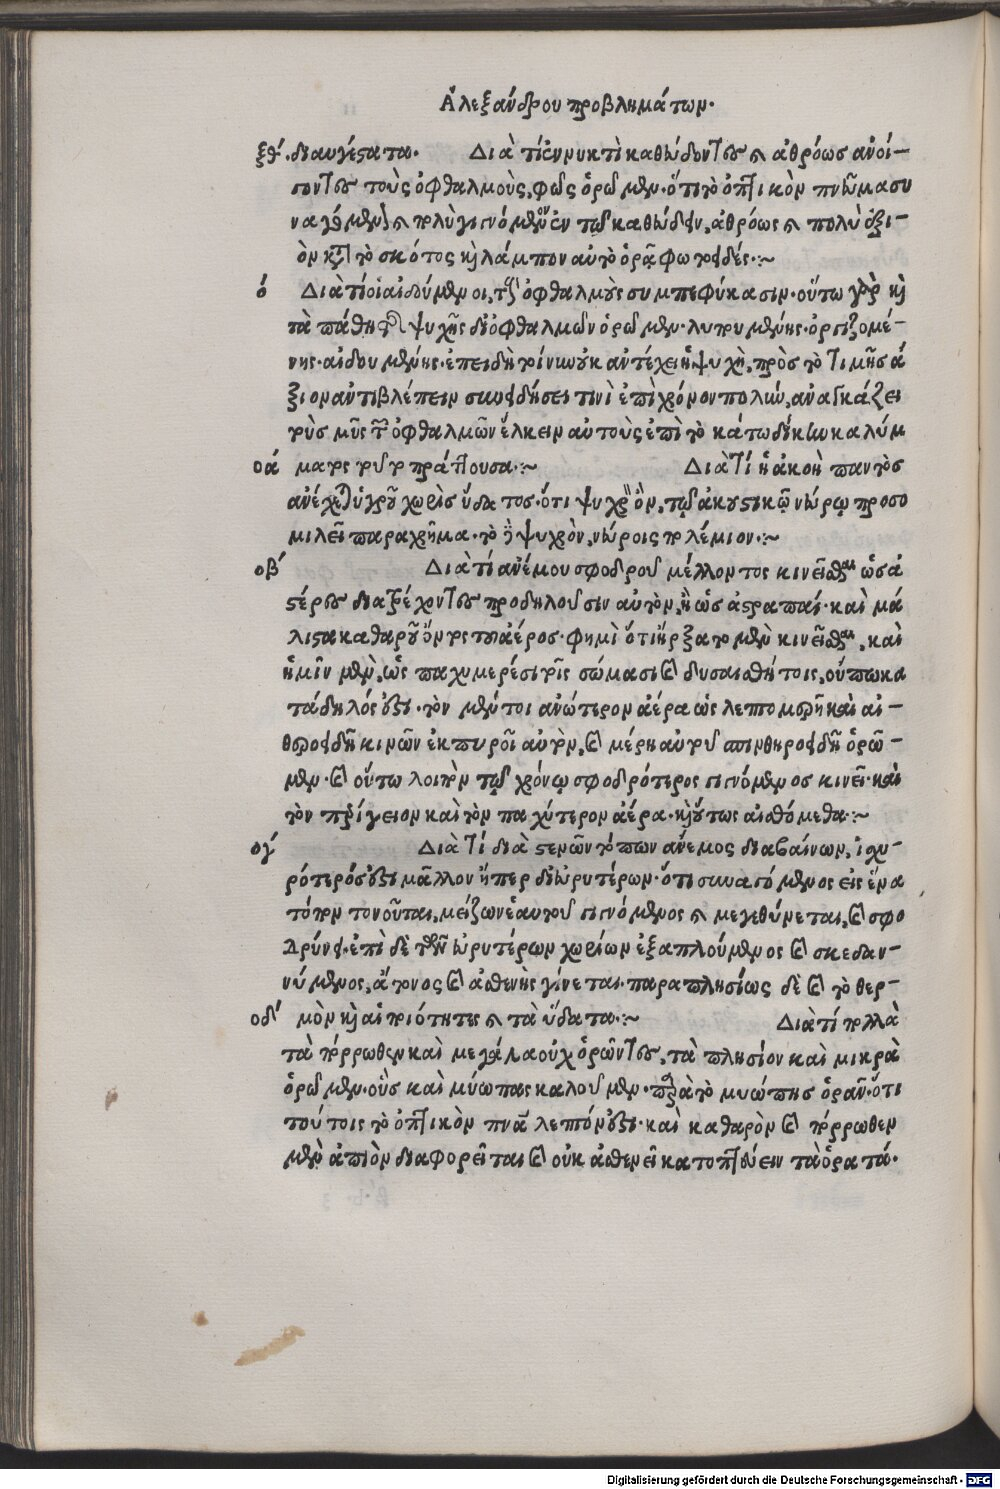 Ἀλεξάνδρου προβλημάτων.
ξθ΄. διαυγέστατα. Διὰ τί ἐν νυκτὶ καθεύδοντες καὶ ἀθρόως ἀνοί-
ξαντες τοὺς ὀφθαλμοὺς, φῶς ὁρῶμεν. ὅτι τὸ ὀπτικὸν πνεῦμα συ
ναγόμενον καὶ πολὺ γινόμενον ἐν τῷ καθεύδειν, ἀθρόως καὶ πολὺ ἐξι-
ὸν κατὰ τὸ σκότος καὶ λάμπον αὐτὸ ὁρᾷ φωτοειδές.
ό Διὰ τί οἱ αἰδούμενοι, τοὺς ὀφθαλμοὺς συμπεφύκασιν. οὕτω γὰρ καὶ
τὰ πάθη τῆς ψυχῆς δι' ὀφθαλμῶν ὁρῶμεν. λυπουμένης. ὀργιζομέ-
νης. αἰδουμένης. ἐπειδὴ τοίνυν οὐκ ἀντέχει ἡ ψυχὴ, πρὸς τὸ τιμῆς ἄ
ξιον ἀντιβλέπειν συνειδήσει τινὶ ἐπὶ χρόνον πολὺν, ἀναγκάζει
τοὺς μῦς τῶν ὀφθαλμῶν ἕλκειν αὐτοὺς ἐπὶ τὸ κάτω δίκην καλύμ
οά ματος τοῦτο πράττουσα. Διὰ τί ἡ ἀκοὴ παντὸς
ἀνέχεται ὑγροῦ χωρὶς ὕδατος. ὅτι ψυχρὸν ὂν, τῷ ἀκουστικῷ νεύρῳ προσο
μιλεῖ παραχρῆμα. τὸ δὲ ψυχρὸν, νεύροις πολέμιον.
οβ΄ Διὰ τί ἀνέμου σφοδροῦ μέλλοντος κινεῖσθαι ὡς ἀ
στέρες διατρέχοντες προδηλοῦσιν αὐτὸν, ἢ ὡς ἀστραπαί. καὶ μά
λιστα καθαροῦ ὄντος τοῦ ἀέρος. φημὶ ὅτι ἤρξατο μὲν κινεῖσθαι, καὶ
ἡμῖν μὲν, ὡς παχυμερέσι τοῖς σώμασι καὶ δυσαισθήτοις, οὔπω κα
τάδηλός ἐστι. τὸν μέντοι ἀνώτερον ἀέρα ὡς λεπτομερῆ καὶ αἰ-
θεροειδῆ κινῶν ἐκπυροῖ αὐτὸν, καὶ μέρη αὐτοῦ σπινθηροειδῆ ὁρῶ-
μεν. καὶ οὕτω λοιπὸν τῷ χρόνῳ σφοδρότερος γινόμενος κινεῖ καὶ
τὸν πρίγειον καὶ τὸν παχύτερον ἀέρα. καὶ οὕτως αἰσθόμεθα.
ογ΄ Διὰ τί διὰ στενῶν τόπων ἄνεμος διαβαίνων, ἰσχυ-
ρότερός ἐστι μᾶλλον ἤπερ δι' εὐρυτέρων. ὅτι συναγόμενος εἰς ἕνα
τόπον τονοῦται, μείζων ἑαυτοῦ γινόμενος καὶ μεγεθύνεται, καὶ σφο
δρύνει. ἐπὶ δὲ τῶν εὐρυτέρων χωρίων ἐξαπλούμενος καὶ σκεδαν-
νύμενος, ἄτονος καὶ ἀσθενὴς γίνεται. παραπλησίως δὲ καὶ τὸ θερ-
οδ΄ μὸν καὶ αἱ ποιότητες καὶ τὰ ὕδατα. Διὰ τί πολλὰ
τὰ πόρρωθεν καὶ μεγάλα οὐχ ὁρῶντες, τὰ πλησίον καὶ μικρὰ
ὁρῶμεν. οὓς καὶ μύωπας καλοῦμεν. παρὰ τὸ μυώπης ὁρᾶν. ὅτι
τούτοις τὸ ὀπτικὸν πνεῦμα λεπτόν ἐστι. καὶ καθαρὸν καὶ πόρρωθεν
μὲν ἀπιὸν διαφορεῖται καὶ οὐκ ἀσθενεῖ κατοπτεύειν τὰ ὁρατά.
Digitalisierung gefördert durch die Deutsche Forschungsgemeinschaft - DFG